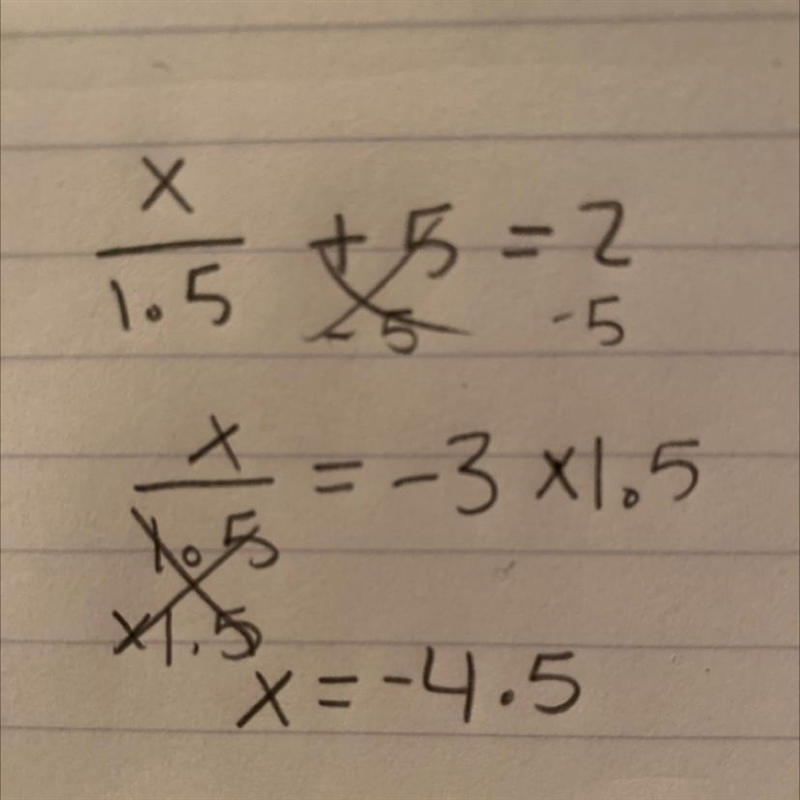 x
1.5 + 5 = 2
- 5 -5
x
1.5 = -3 x1.5
x1.5
x = -4.5